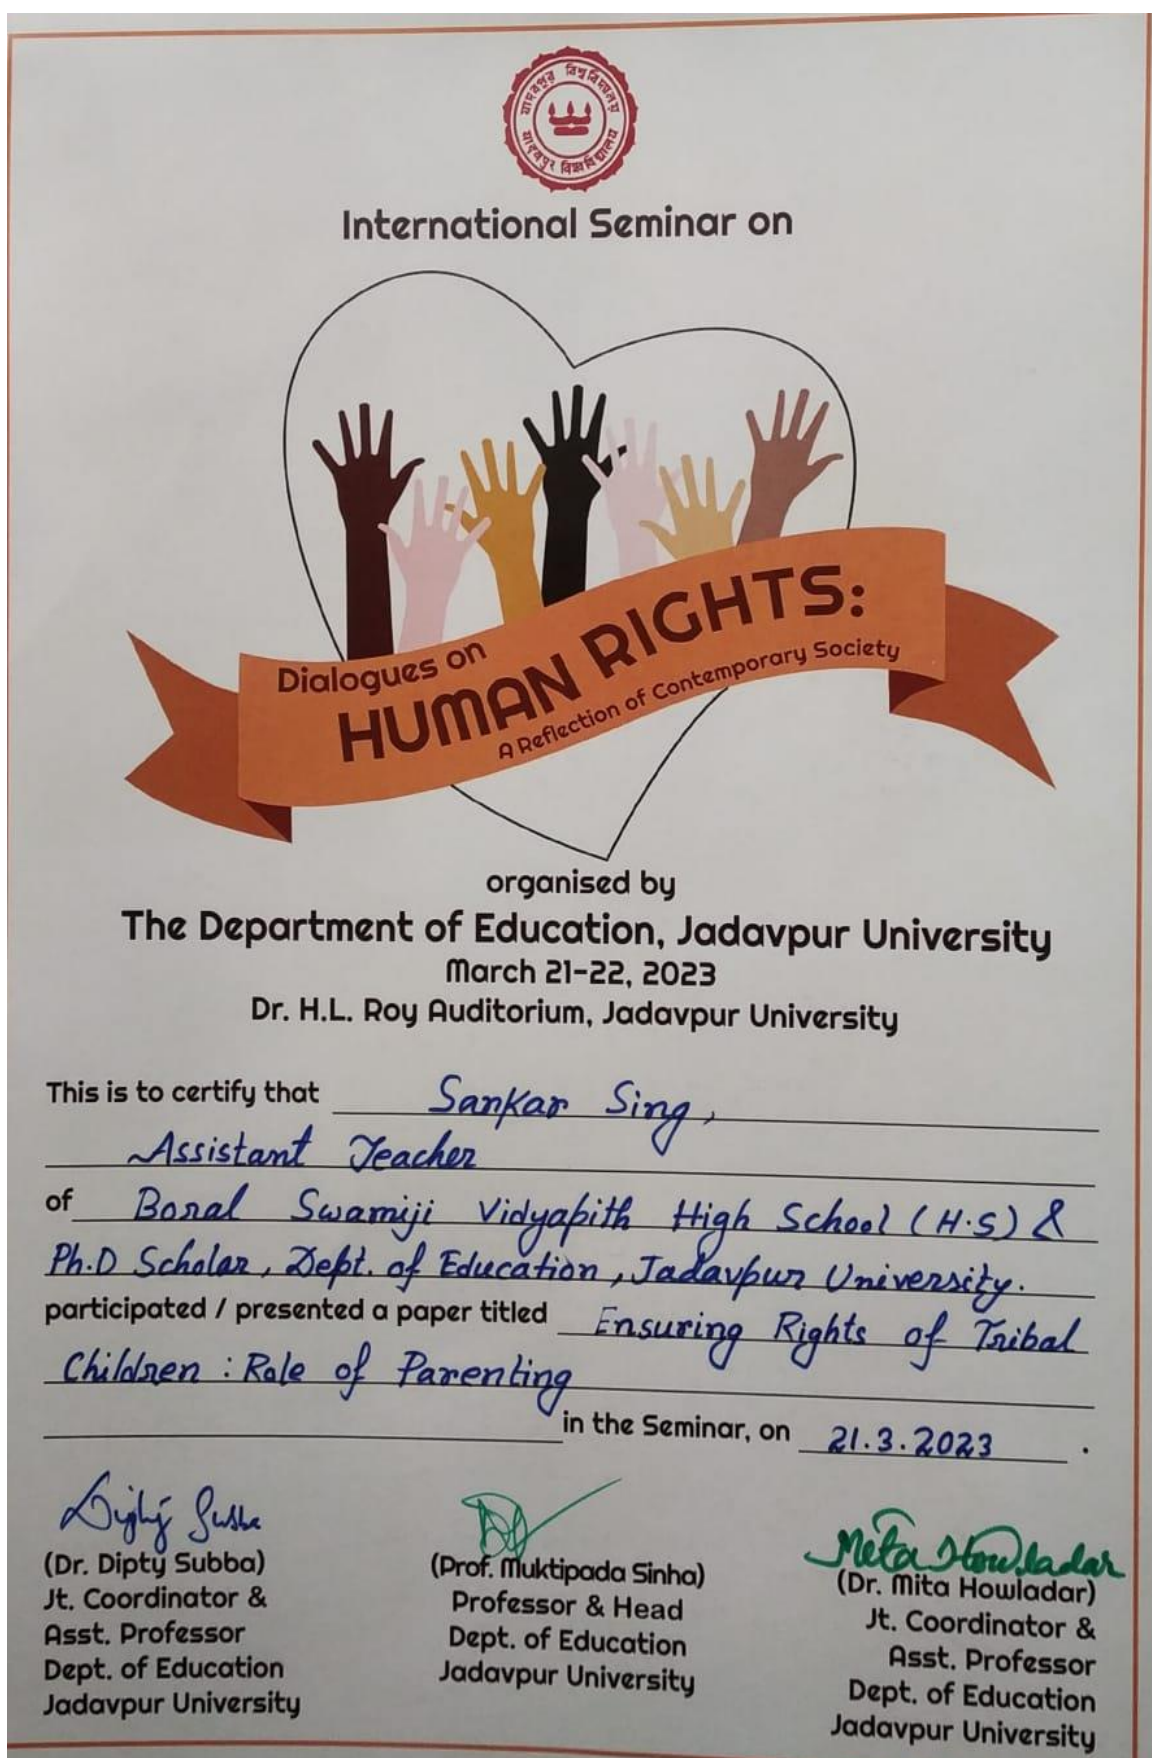 যাদবপুর বিশ্ববিদ্যালয়
International Seminar on
Dialogues on
HUMAN RIGHTS:
A Reflection of Contemporary Society
organised by
The Department of Education, Jadavpur University
March 21-22, 2023
Dr. H.L. Roy Auditorium, Jadavpur University
This is to certify that Sankar Sing,
Assistant Teacher
of Boral Swamiji Vidyapith High School (H.S) &
Ph.D Scholar, Dept. of Education, Jadavpur University.
participated / presented a paper titled Ensuring Rights of Tribal
Children : Role of Parenting
in the Seminar, on 21.3.2023 .
Dipty Subba
Mita Howladar
(Dr. Dipty Subba)
Jt. Coordinator &
Asst. Professor
Dept. of Education
Jadavpur University
(Prof. Muktipada Sinha)
Professor & Head
Dept. of Education
Jadavpur University
(Dr. Mita Howladar)
Jt. Coordinator &
Asst. Professor
Dept. of Education
Jadavpur University